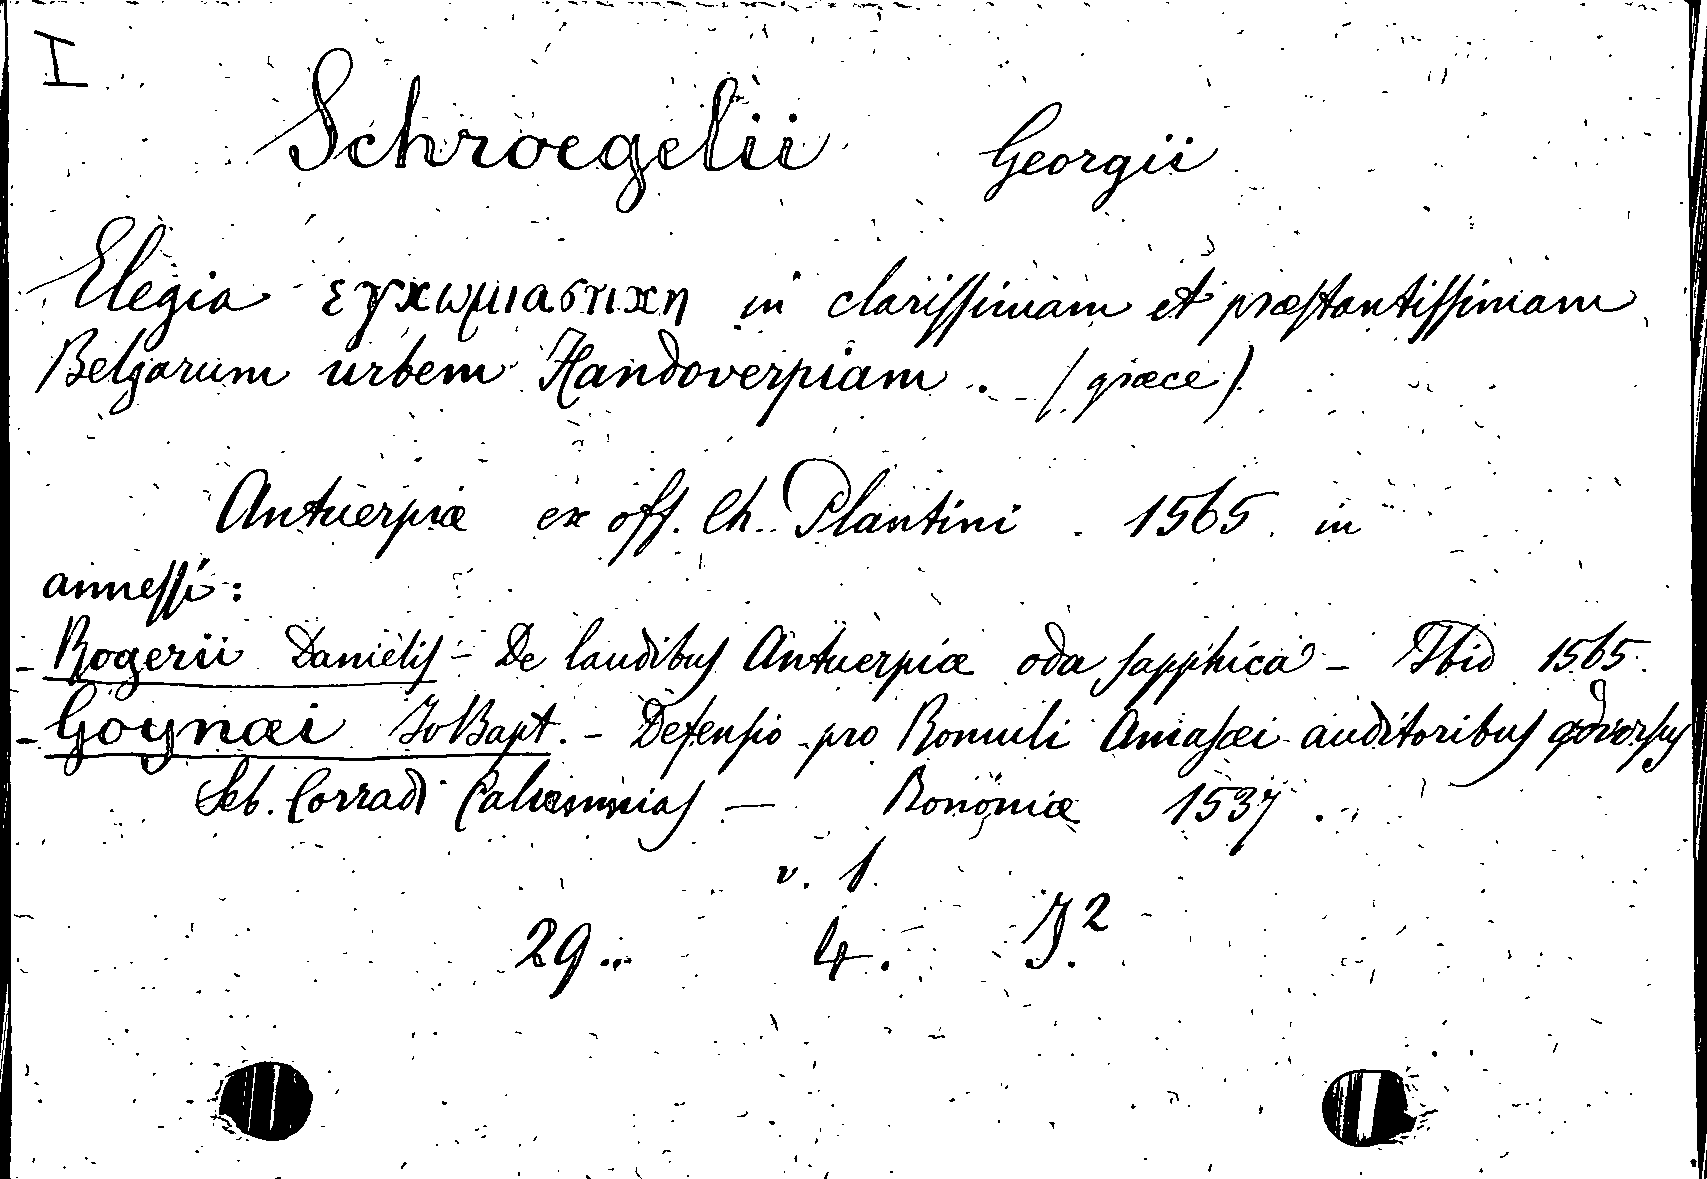 I
Schroegelii Georgii
Elegia εγκωμιαστικη in clarissimam et præstantissimam
Belgarum urbem Handoverpiam. (græce)
Antuerpiæ ex off. Ch. Plantini. 1565. in
annessi:
- Rogerii Danielis - De laudibus Antuerpiæ oda sapphica - Ibid 1565.
- Goynæi Jo Bapt. - Defensio pro Romuli Amasæi auditoribus adversus
Seb. Corradi Calumnias - Bononiæ 1537.
v. 1.
29.. 4. J.²